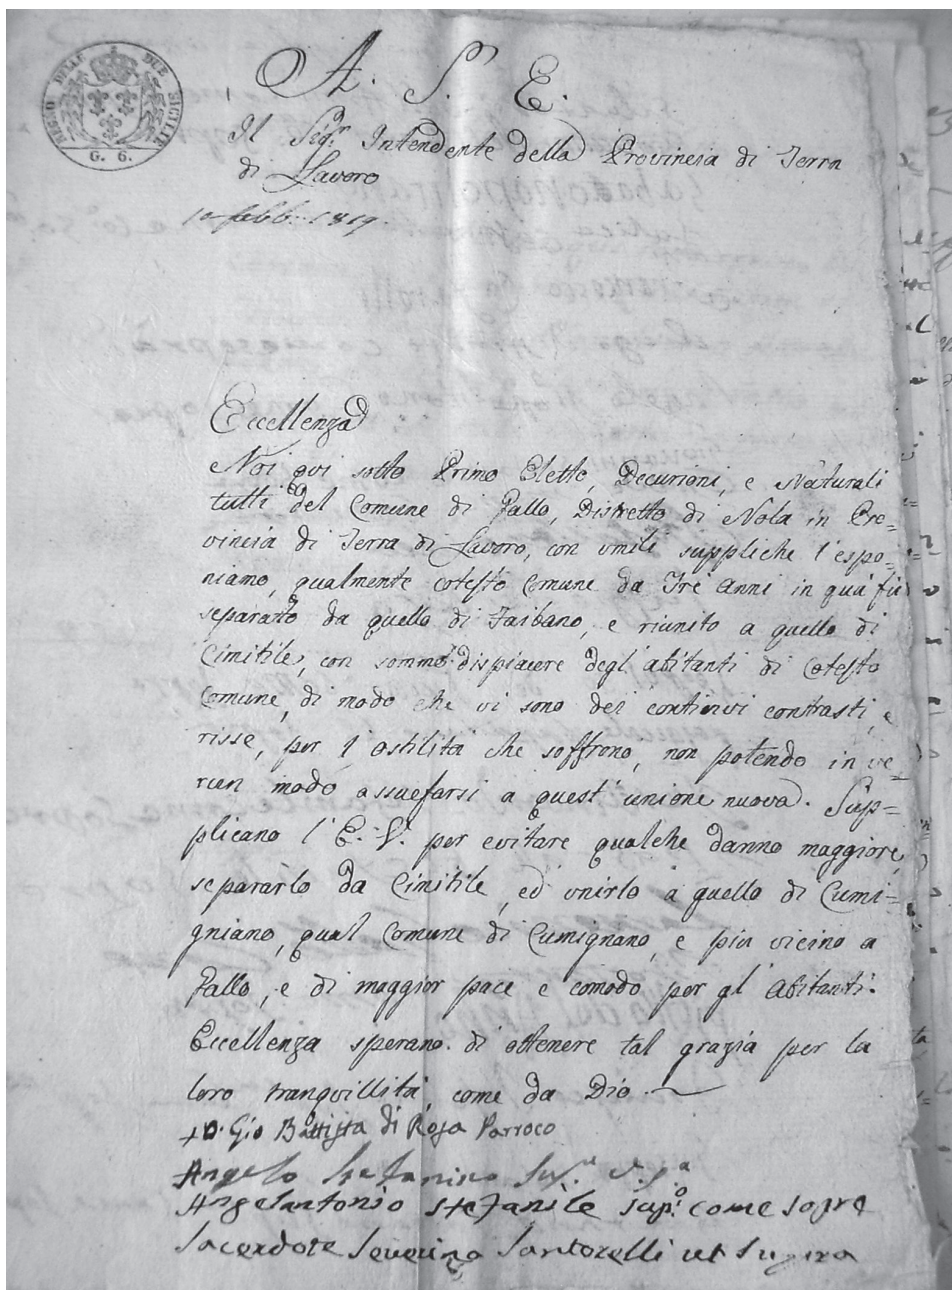 REGNO DELLE DUE SICILIE
G. 6.
A. S. E.
Il Sig.r Intendente della Provincia di Terra
di Lavoro
10 febb. 1819.
Eccellenza
Noi qui sotto Primo Eletto, Decurioni, e Naturali
tutti del Comune di Gallo, Distretto di Nola in Pro=
vincia di Terra di Lavoro, con umili suppliche l'espo=
niamo, qualmente cotesto Comune da Tre anni in quà fù
separato da quello di Faibano, e riunito a quello di
Cimitile, con sommo dispiacere degl'abitanti di cotesto
Comune, di modo che vi sono dei continui contrasti, e
risse, per l'ostilità che soffrono, non potendo in ve=
run modo assuefarsi a quest'unione nuova. Sup=
plicano l'E. V. per evitare qualche danno maggiore,
separarlo da Cimitile, ed unirlo a quello di Cumi=
gniano, qual Comune di Cumignano, e piu vicino a
Gallo, e di maggior pace e comodo per gl'Abitanti.
Eccellenza sperano di ottenere tal grazia per la
loro tranquillità, come da Dio.
+ D. Gio Battista di Rosa Parroco
Angelo
Angelantonio Stefanile sup.o come sopre
Sacerdote Severino Santorelli ut supra